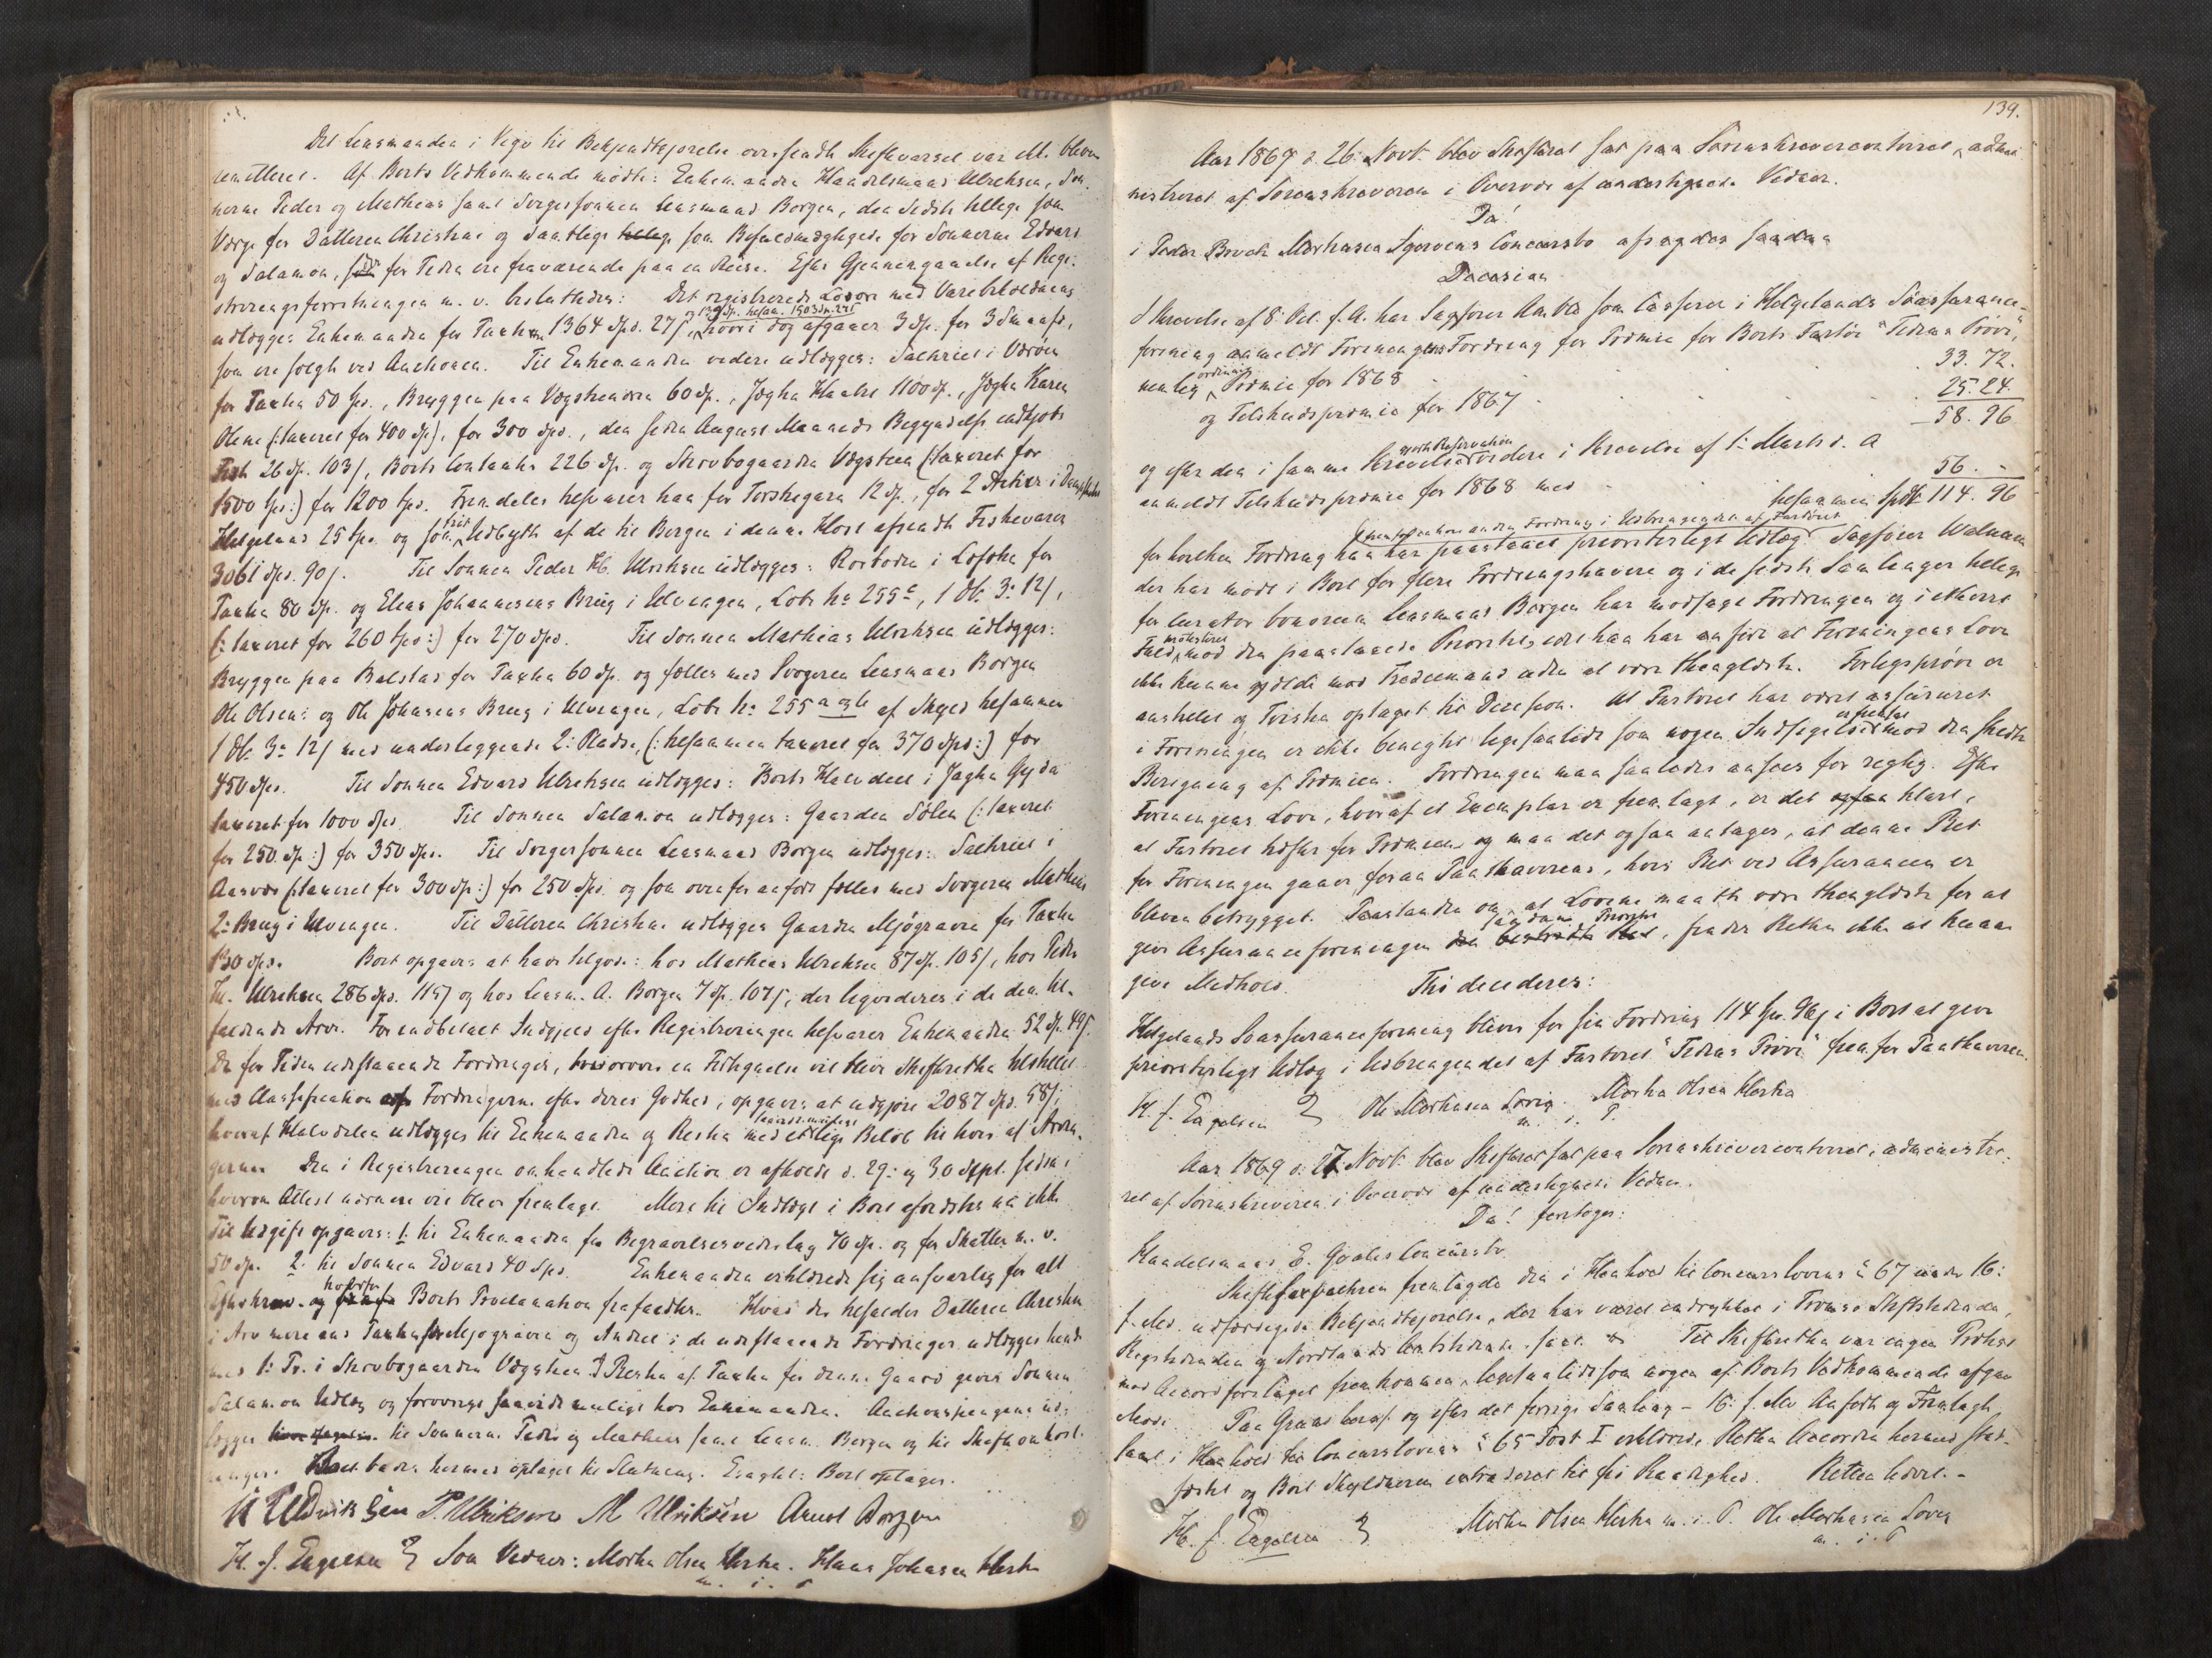 Det Lensmanden i Vegø til Bekjendtgjørelse oversendte Skiftevarsel var ikke bleven
remitteret. Af Boets Vedkommende mødte: Enkemanden Handelsmand Ulriksen, Søn-
nerne Peder og Mathias samt Svigersønnen Lensmand Borgen, den sidste tillige som
Værge for Datteren Christine og samtlige som Befuldmægtigede for Sønnerne Edvard
og Salamon, for Tiden ere fraværende paa en Reise. Efter Gjennemgaaelse af Regi-
streringsforretningen m. v. besluttedes: Det registrerede Løsøre med Varebeholdning
udlægges Enkemanden for Taxten 1364 Spd. 27 s, hvori dog afgaaer 3 Sp. for
som ere solgte ved Auctionen. Til Enkemanden videre udlægges: Salteriet i Værøen
for Taxten 50 Spd., Bryggen paa Vegsteinen 60 Sp., Jægten Haabet 1100 Sp., Jægten Karen
Oline (: taxeret for 400 Sp), for 300 Spd., den siden August Maaneds Begyndelse indkjøbte
Fisk 26 Sp. 103 s, Boets Contante 226 Sp. og Strøbogaarden Vegstein (: taxeret for
1500 Sp:) for 1200 Spd. Fremdeles tilsvarer han for Torskegarn 12 Sp., for 2 Actier i
Helgeland 25 Spd. og som Udbytte af de til Bergen i denne Høst afsendte Fiskevarer
3061 Spd. 90 s. Til Sønnen Peder Ulriksen udlægges: Rorboden i Lofoten for
Taxten 80 Sp. og Elias Johannesens Brug i Ulvingen, Løbe No 255c, 1 Ol. 3 12 s,
(: taxeret for 260 Spd:) for 270 Spd. Til Sønnen Mathias Ulriksen udlægges:
Bryggen paa Balstad for Taxten 60 Sp. og fælles med Svogeren Lensmand Borgen
Ole Olsens og Ole Johnsens Brug i Ulvingen, Løbe No 255 a og b af Skyld tilsammen
1 3 12 s med underliggende 2 Pladse, (: tilsammen taxeret for 370 Spd:) for
450 Spd. Til Sønnen Edvard Ulriksen udlægges: Boets Halvdeel i Jægten Gyda
taxeret for 1000 Spd. Til Sønnen Salamon udlægges: Gaarden Sølen (: taxeret
for 250 Sp:) for 350 Spd. Til Svigersønnen Lensmand Borgen udlægges: Salteriet i
Aasvær (: taxeret for 300 Sp:) for 250 Spd. og som ovenfor anført fælles med Svogeren Mathias
2 Brug i Ulvingen. Til Datteren Christine udlægges Gaarden Mjøgravin for Taxten
130 Spd. Boet opgaves at have tilgode: hos Mathias Ulriksen 87 Sp. 105 s, hos Peder
Ulriksen 286 Spd. 115 s og hos Lensm. A. Borgen 7 Sp. 107 s, der liqvideres i de dem til-
faldende Arv. For indbetalt Indgjeld efter Registreringen tilsvarer Enkemanden 52 Sp. 49 s.
De for Tiden udestaaende Fordringer, hvorover en Fortegnelse vil blive Skifteretten tilstillet
med Classification af Fordringerne efter deres Godhed, opgaves at udgjøre 2087 Spd. 58 s;
hvoraf Halvdelen udlægges til Enkemanden og Resten med Beløb til hver af Arvin-
gerne. Den i Registreringen omhandlede Auction er afholdt d. 29 og 30 Septbr. sidstl.,
hvorom Attest nærmere vil blive fremlagt. Mere til Indtægt i Boet haves ikke
Til Udgift opgaves: 1. til Enkemanden for Begravelsesvederlag 70 Sp. og for Skatter m. v.
50 Sp. 2. til Sønnen Edvard 40 Spd. Enkemanden erklærede sig ansvarlig for alt
og hvorfor Boets Proclamation frafaldtes. Hvad der tilfalder Datteren Christine
i Arv mere end Taxten for Mjøgravin og Andeel i de udestaaende Fordringer udlægges hende
med 1 Pr. i Strøbogaarden Vegstein. I Resten af Taxten for denne Gaard gives Sønnen
Salamon Udlæg og forøvrigt saavidt muligt hos Enkemanden. Auctionspengene ud-
lægges til Sønnerne Peder og Mathias samt Lensm. Borgen og til Skifteomkost-
ninger. Boet hermed optaget til Slutning. Eragtet: Boet optages.
Ulriksen P. Ulriksen M Ulriksen Arent Borgen
H. J. Engelsen Som Vidner: Morten Olsen Hestn. Hans Johansen Hestn
m. i. P
139.
Aar 1869 d. 26 Novbr. blev Skifteret sat paa Sorenskrivercontoiret, admi-
nistreret af Sorenskriveren i Overvær af undertegnede Vidner.
Da!
i Peder Broch Mortensen Concursbo afsagdes saadan
Decision
I Skrivelse af 8 Oct. f. A. har Sagfører som Casserer i Helgelands Søassurance-
forening anmeldt Foreningens Fordring for Præmie for Boets Fartøi "Tidens Prøve",
nemlig ordinær Præmie for 1868 33. 72.
og Tilskudspræmie for 1867 25. 24.
58. 96
og efter den i samme Skrivelse gjorte Reservation videre i Skrivelse af 1 Marts d. A
anmeldt Tilskudspræmie for 1868 med 56. -
tilsammen Spd 114. 96
for hvilken Fordring han har paastaaet prioriteligt Udlæg. Sagfører Walnum
der har mødt i Boet for flere Fordringshavere og i de sidste Samlinger tillige
for curator bonorum Lensmand Borgen har modsagt Fordringen og i ethvert
Fald protesteret mod den paastaaede Prioritet, idet han har anført at Foreningens Love
ikke kunne gjælde mod Trediemand uden at være thinglæste. Forligsprøve er
anstillet og Tvisten optaget til Decision. At Fartøiet har været assureret
i Foreningen er ikke benegtet ligesaalidt som nogen Indsigelse er fremsat mod den skedte
Beregning af Præmien. Fordringen maa saaledes ansees for rigtig. Efter
Foreningens Love, hvoraf et Exemplar er fremlagt, er det klart,
at Fartøiet hefter for Præmien og maa det ogsaa antages, at denne Ret
for Foreningen gaaer foran Panthaverens, hvis Ret ved Assurancen er
bleven betrygget. Paastanden om, at Lovene maatte være thinglæste for at
give Assuranceforeningen saadan Prioritet, finder Retten ikke at kunne
give Medhold. Thi decideres:
Helgelands Søassuranceforening bliver for sin Fordring 114 Spd. 96 s i Boet at give
prioriteligt Udlæg i Udbringendet af Fartøiet "Tidens Prøve" fremfor Panthaveren.
H. J. Engelsen Ole Mortensen Sørig Morten Olsen Hestn
m. i. P.
Aar 1869 d. 27 Novbr. blev Skifteret sat paa Sorenskrivercontoiret, administre-
ret af Sorenskriveren i Overvær af undertegnede Vidner.
Da! foretoges:
Handelsmand E. Concursbo
Skifteforvalteren fremlagde den i Henhold til Concurslovens § 67 under 16
f. Md. udfærdigede Bekjendtgjørelse, der har været indrykket i Tromsø Stiftstidende,
Rigstidenden og Nordlands Amtstidende. Til Skifteretten var ingen Protest
mod Accordforslaget fremkommen, ligesaalidt som nogen af Boets Vedkommende afgav
Møde. Paa Grund heraf og efter det forrige Samling – 16 f. Md. Anførte og Fremlagte
samt i Henhold til Concurslovens § 65 Post I erklærede Retten Accorden hermed stad-
fæstet og Boet Skyldneren extraderet til fri Raadighed. Retten hævet. -
H. J. Engelsen Morten Olsen Hestn m. i. P. Ole Mortensen Sørig
m. i. P